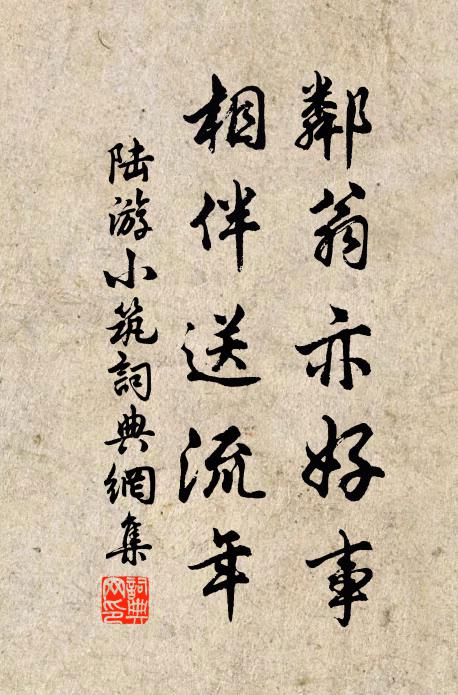 鄰翁亦好事
相伴送流年
陆游小筑詞典網集
詞典